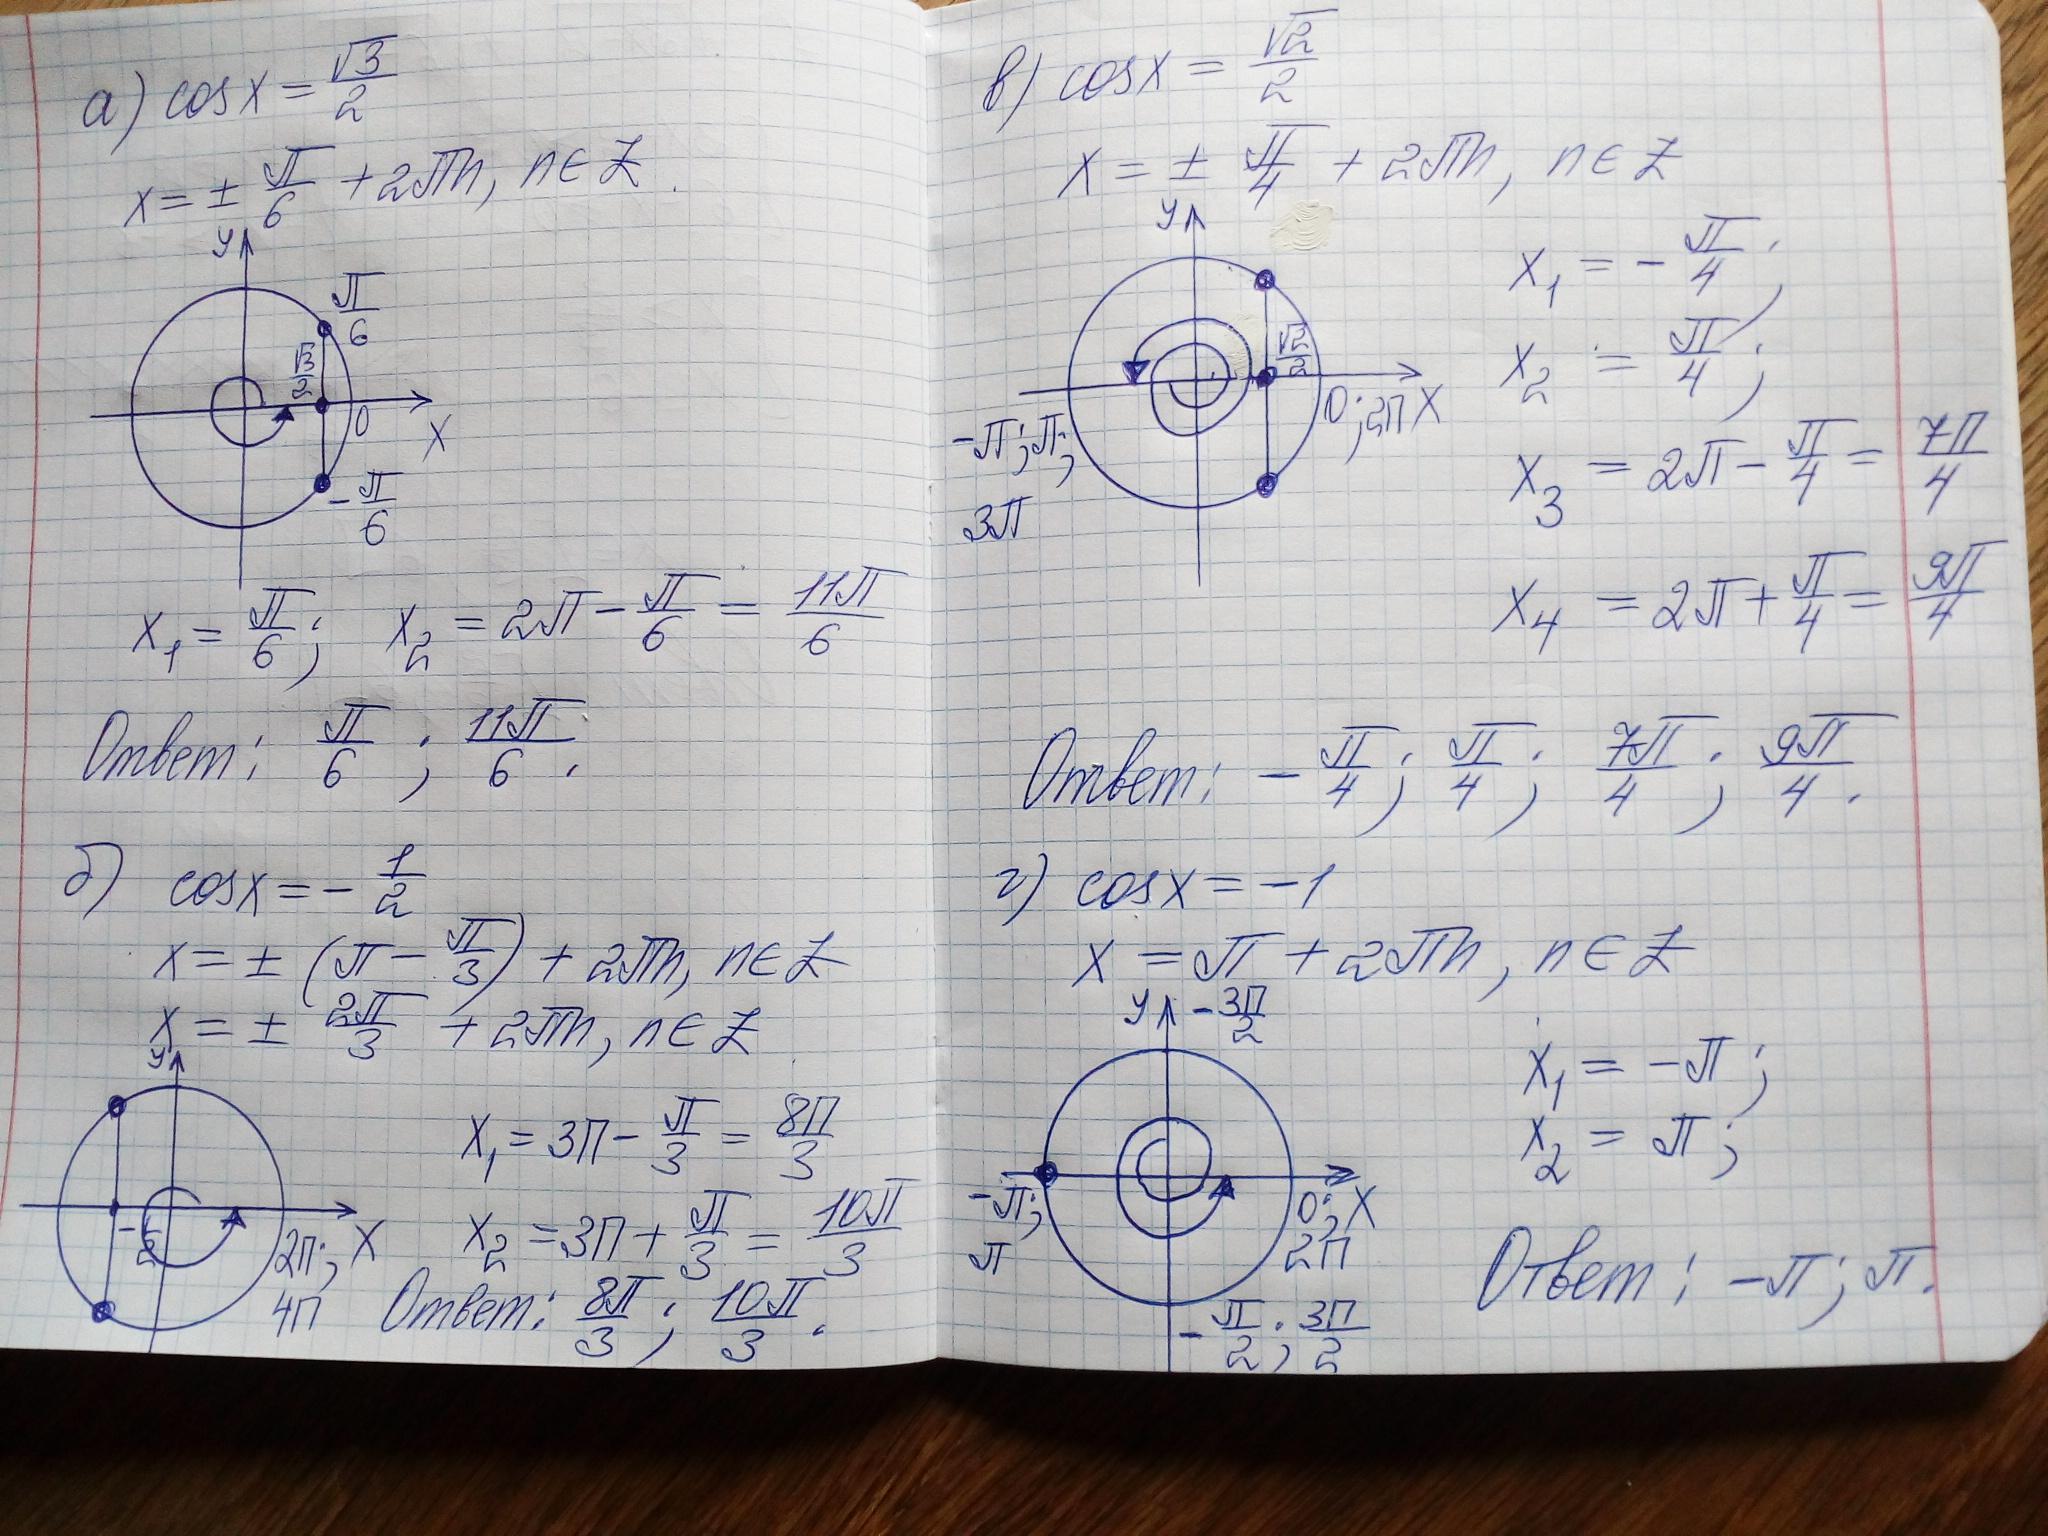 а) cosx = √3/2
x = ± π/6 + 2πn, n ∈ Z.
y
π/6
√3/2
0
x
-π/6
x₁ = π/6; x₂ = 2π - π/6 = 11π/6
Ответ: π/6; 11π/6.
б) cosx = - 1/2
x = ± (π - π/3) + 2πn, n ∈ Z
x = ± 2π/3 + 2πn, n ∈ Z
y
-1/2
2π; x
4π
x₁ = 3π - π/3 = 8π/3
x₂ = 3π + π/3 = 10π/3
Ответ: 8π/3; 10π/3.
в) cosx = √2/2
x = ± π/4 + 2πn, n ∈ Z
y
√2/2
0; 2π x
-π; π;
3π
x₁ = - π/4;
x₂ = π/4;
x₃ = 2π - π/4 = 7π/4
x₄ = 2π + π/4 = 9π/4
Ответ: - π/4; π/4; 7π/4; 9π/4.
г) cosx = -1
x = π + 2πn, n ∈ Z
y -3π/2
-π;
π
0; x
2π
-π/2; 3π/2
x₁ = -π;
x₂ = π;
Ответ: -π; π.